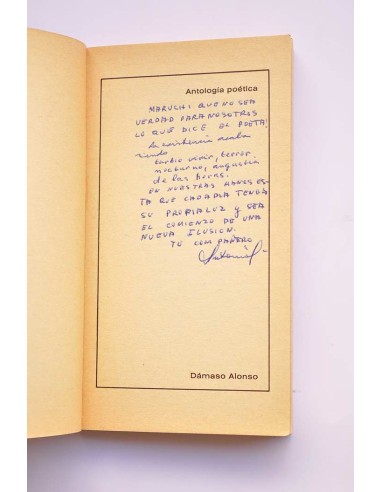 Antología poética
MARUCHI QUE NO SEA
VERDAD PARA NOSOTROS
LO QUE DICE EL POETA:
la existencia
siendo
turbio vivir, terror
nocturno, angustia
de las horas.
EN NUESTRAS MANOS ES-
TA QUE CADA DIA TENGA
SU PROPIA LUZ y SEA
EL COMIENZO DE UNA
NUEVA ILUSION.
TU COMPAÑERO
Antonio
Dámaso Alonso